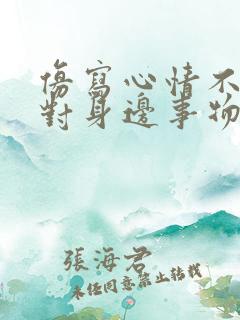 傷寫心情不
對身邊事物
張海君
未經同意禁止轉載